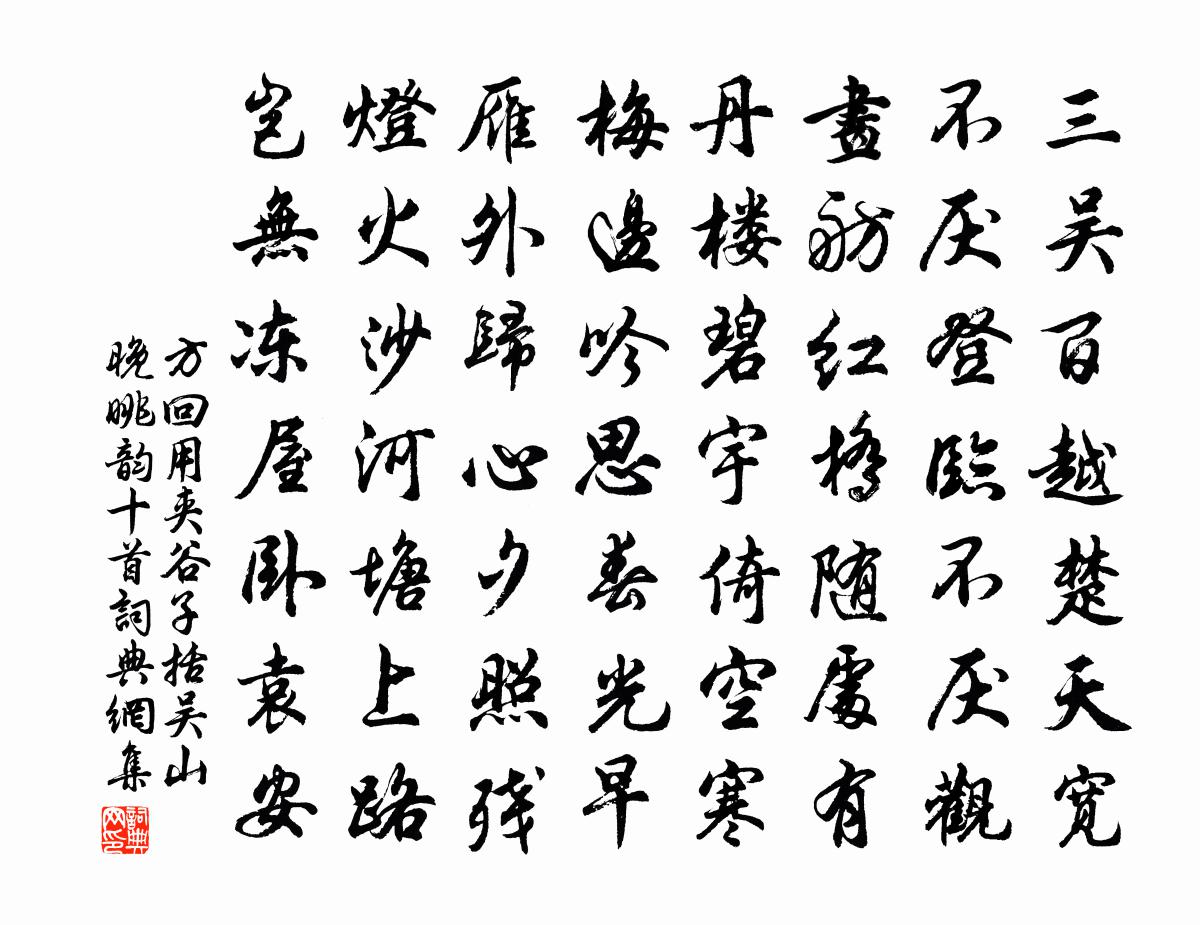 三吴百越楚天寛
不厌登臨不厌觀
畫舫红橋随處有
丹楼碧宇倚空寒
梅邊吟思春光早
雁外歸心夕照残
燈火沙河塘上路
岂無冻屋卧袁安
方回用夹谷子括吴山
晚眺韵十首詞典網集
詞典
网印